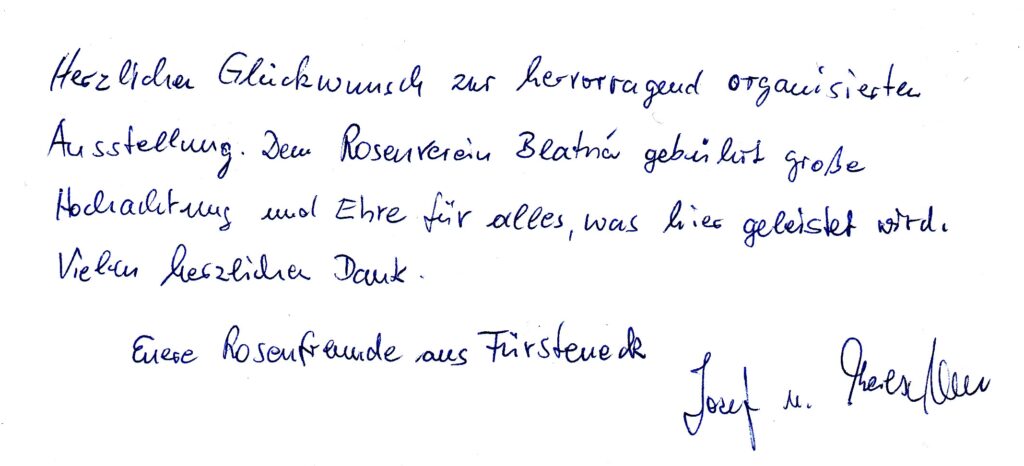 Herzlichen Glückwunsch zur hervorragend organisierten
Ausstellung. Dem Rosenverein Blatná gebührt große
Hochachtung und Ehre für alles, was hier geleistet wird.
Vielen herzlichen Dank.
Euere Rosenfreunde aus Fürsteneck
Josef u.